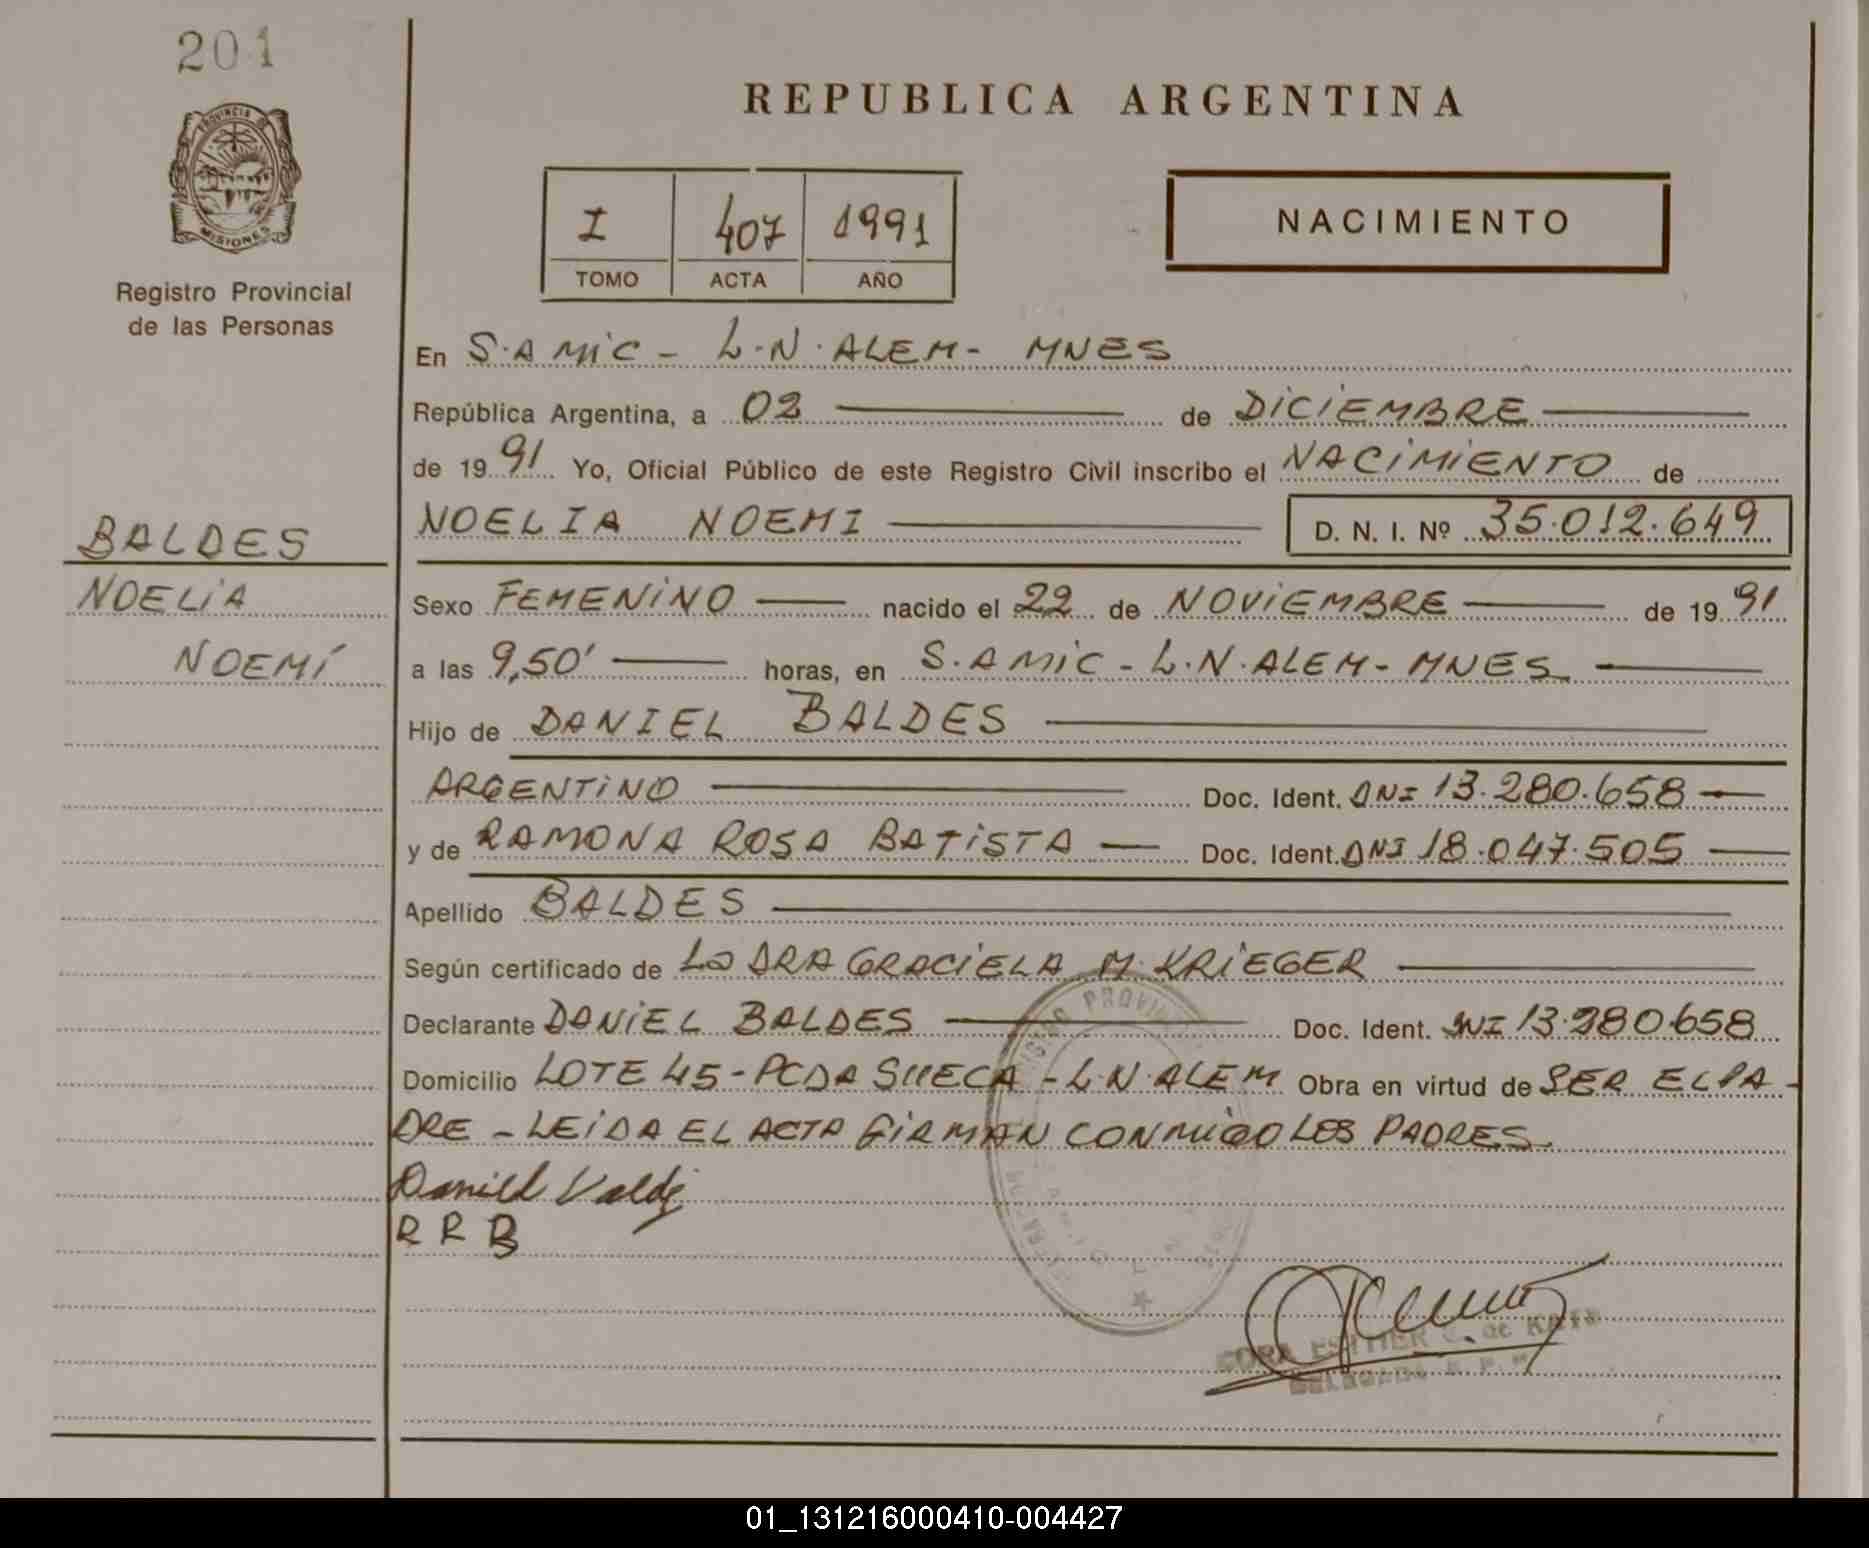 201
PROVINCIA DE
MISIONES
Registro Provincial
de las Personas
REPUBLICA ARGENTINA
I 407 1991
TOMO ACTA AÑO
NACIMIENTO
En S.AMIC - L.N.ALEM- MNES
República Argentina, a 02 de DICIEMBRE
de 1991 Yo, Oficial Público de este Registro Civil inscribo el NACIMIENTO de
BALDES
NOELIA
NOEMÍ
NOELIA NOEMI D. N. I. Nº 35.012.649
Sexo FEMENINO nacido el 22 de NOVIEMBRE de 1991
a las 9,50' horas, en S.AMIC - L.N.ALEM- MNES
Hijo de DANIEL BALDES
ARGENTINO Doc. Ident. DNI 13.280.658
y de RAMONA ROSA BATISTA Doc. Ident. DNI 18.047.505
Apellido BALDES
Según certificado de La DRA GRACIELA M. KRIEGER
Declarante DANIEL BALDES Doc. Ident. DNI 13.280.658
Domicilio LOTE 45-PCDA SUECA - L.N ALEM Obra en virtud de SER EL PA-
DRE - LEIDA EL ACTA FIRMAN CONMIGO LOS PADRES.
Daniel
R R B
REGISTRO PROVIN
ESTHER C. de
DELEGADA R. P.
01_131216000410-004427